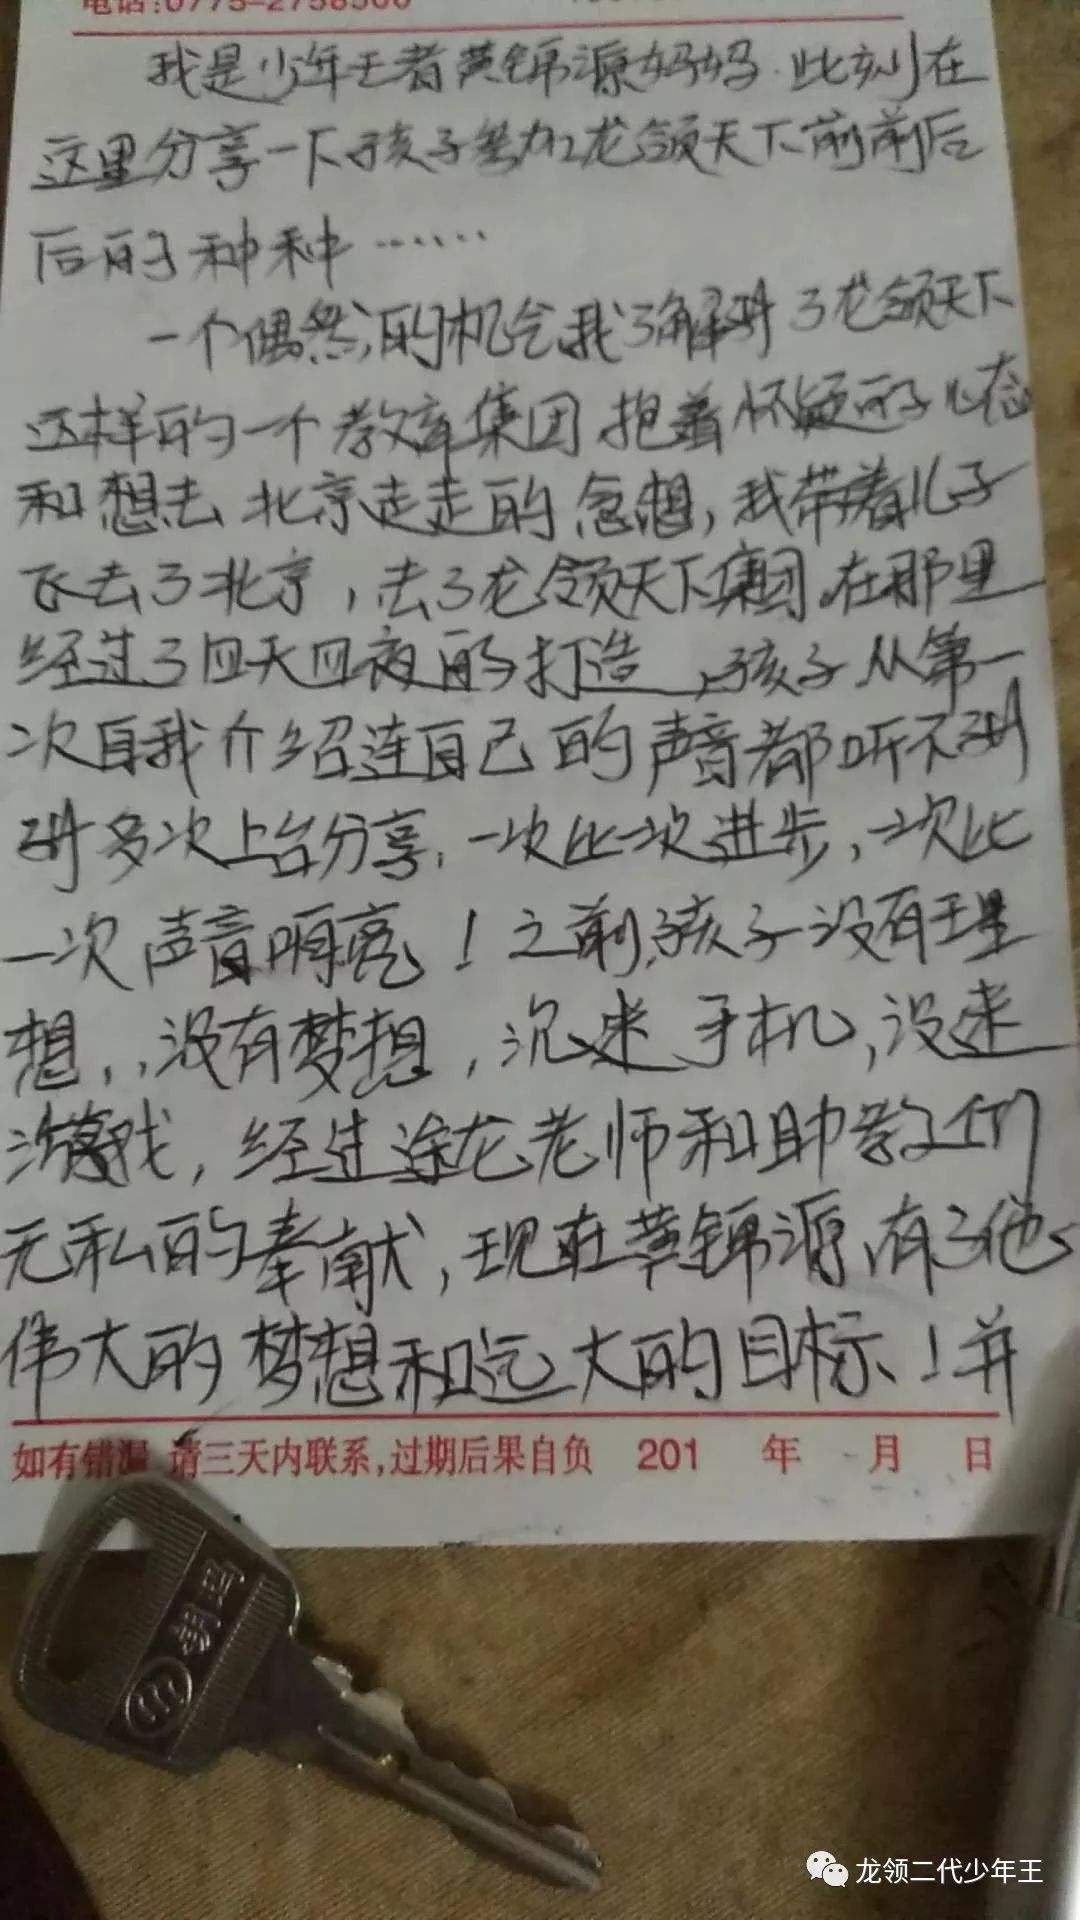 电话:0775-2758500
我是少年王者黄锦源妈妈.此刻在
这里分享一下孩子参加龙领天下前前后
后的种种……
一个偶然的机会我了解到了龙领天下
这样的一个教育集团抱着怀疑的心态
和想去北京走走的念想,我带着儿子
飞去了北京,去了龙领天下集团.在那里
经过了四天四夜的打造,孩子从第一
次自我介绍连自己的声音都听不到
到多次上台分享,一次比一次进步,一次比
一次声音响亮!之前,孩子没有理
想,,没有梦想,沉迷手机,没迷
游戏,经过途龙老师和助教们
无私的奉献,现在黄锦源有了他
伟大的梦想和远大的目标、!并
如有错漏 请三天内联系,过期后果自负 201 年 月 日
龙领二代少年王